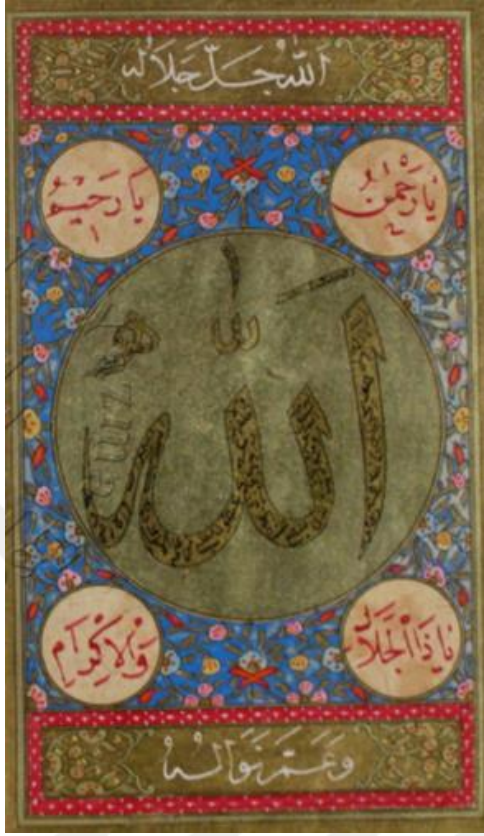 اللّٰه جَلَّ جَلَالُهُ
يَا رَحْمٰنُ
يَا رَحِيمُ
اللّٰه
يَا ذَا الْجَلَالِ
وَالْإِكْرَامِ
وَعَمَّ نَوَالُهُ